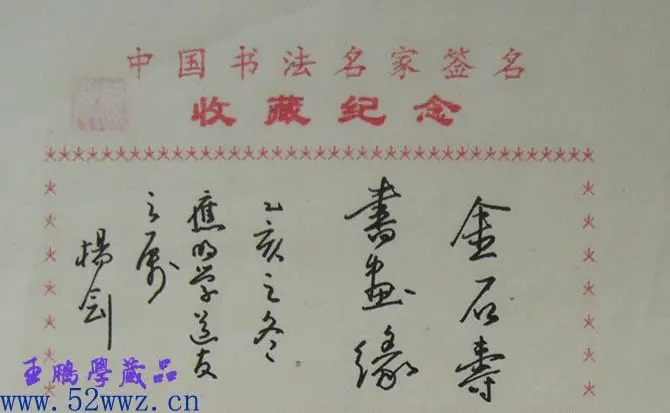 中国书法名家签名
收藏纪念
金石寿
書画缘
乙亥之冬
樵明学道友
之属
楊剑
王鵬學藏品
www.52wwz.cn